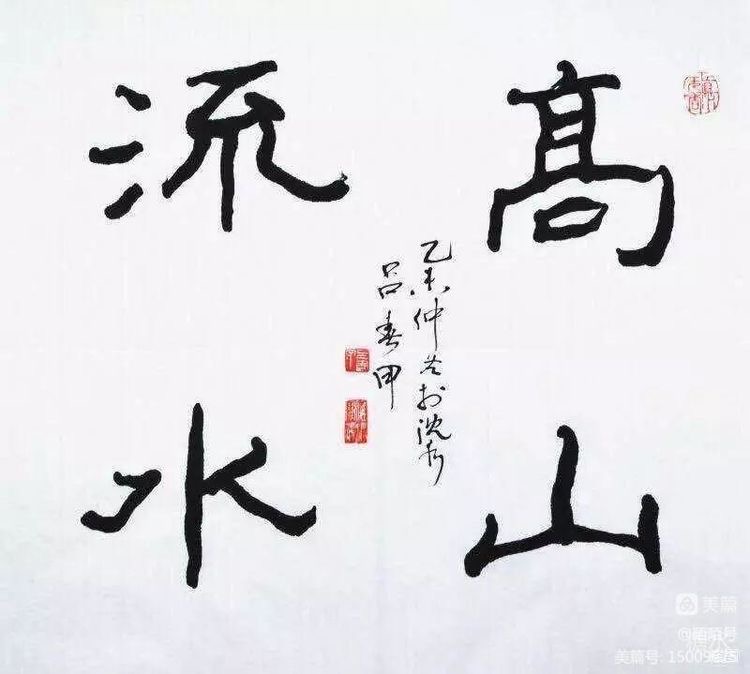 高山
流水
乙未仲冬於沈陽
吕春甲
美篇
美篇号: 1500